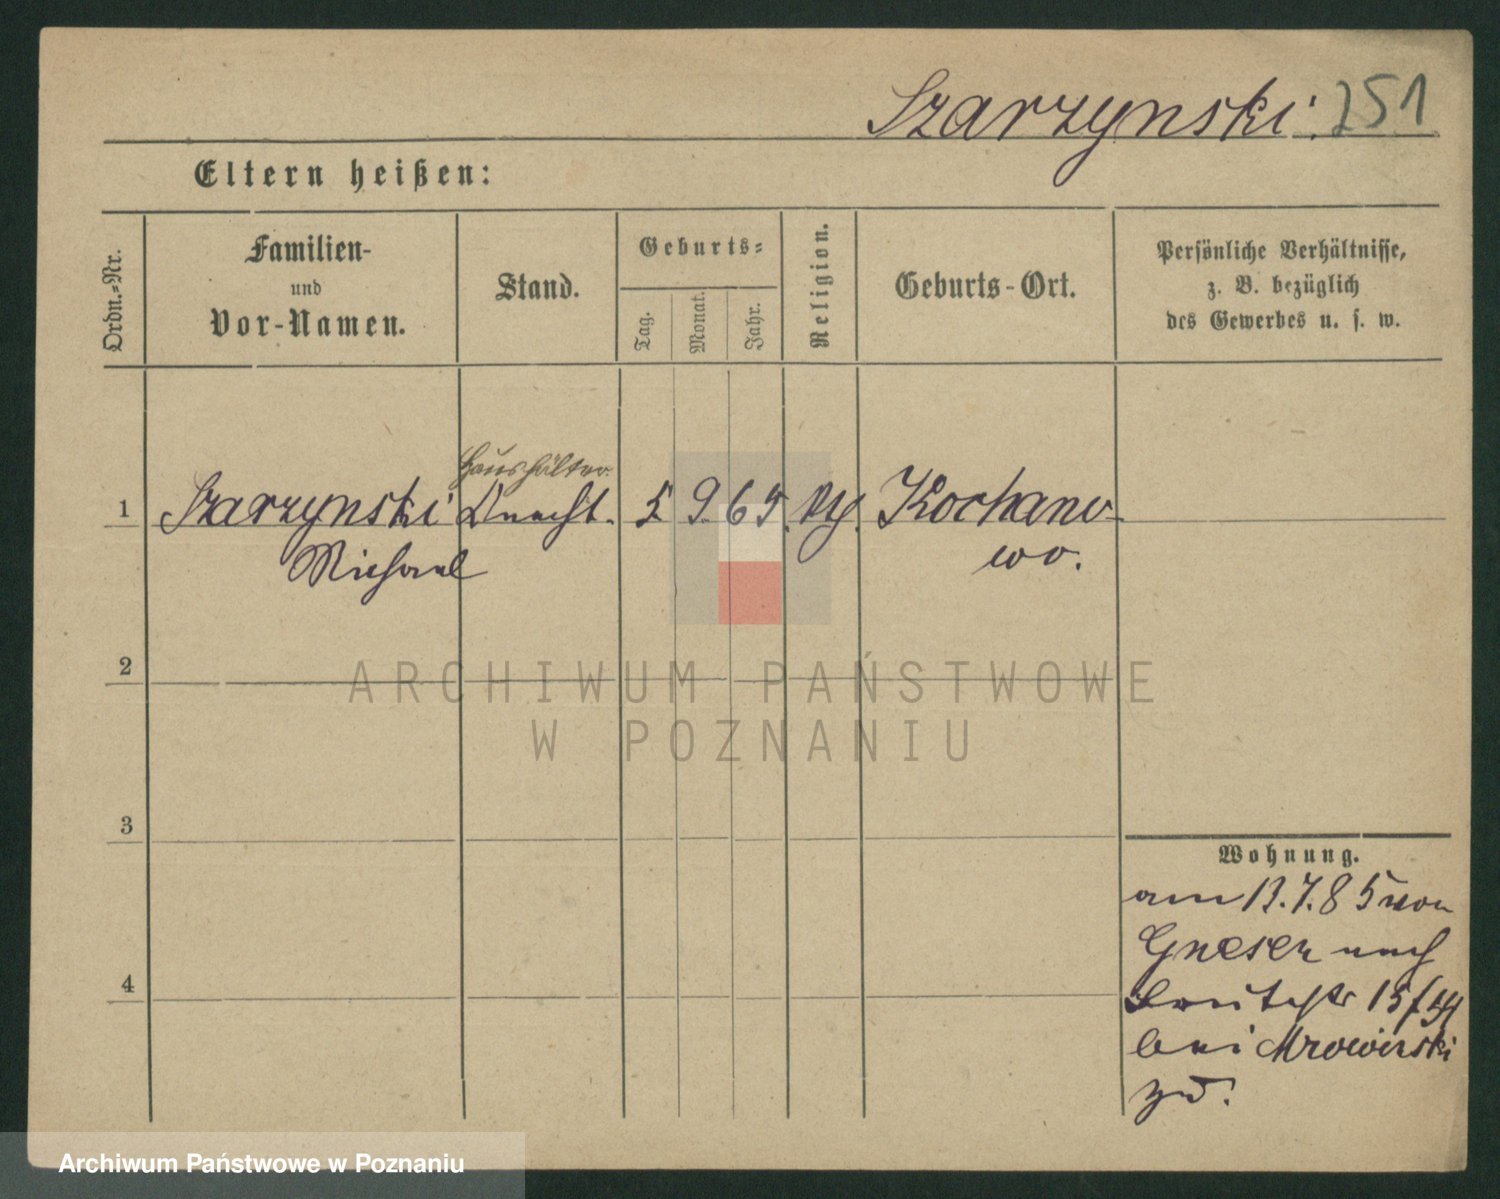 Szarzynski. 251
Eltern heißen:
Ordn.-Nr.
Familien-
und
Vor-Namen.
Stand.
Geburts-
Tag.
Monat.
Jahr.
Religion.
Geburts-Ort.
Persönliche Verhältnisse,
z. B. bezüglich
des Gewerbes u. s. w.
Haushälter
1 Szarzynski Knecht. 5 9. 65. Kochano-
Michael wo.
2
ARCHIWUM PAŃSTWOWE
W POZNANIU
3
4
Wohnung.
am 13.7.85 von
Gnesen nach
15
bei Mrowinski
zu.
Archiwum Państwowe w Poznaniu